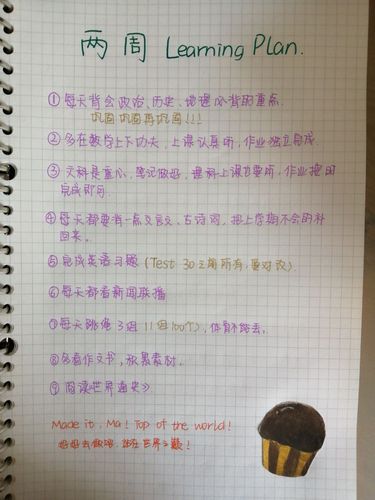 两周 Learning Plan.
①每天背会政治、历史、地理必背的重点.
巩固巩固再巩固!!!
②多在数学上下功夫,上课认真听,作业独立完成.
③文科是重心,笔记做好,理科上课也要听,作业按时
完成即可.
④每天都要有一点文言文、古诗词,把上学期不会的补
回来。
⑤完成英语习题(Test 30之前所有,要对改).
⑥每天都看新闻联播
⑦每天跳绳3组(1组100个),体育不能丢。
⑧多看作文书,积累素材.
⑨阅读世界通史》
Made it, Ma! Top of the world!
好好去做吧,站在世界之巅!